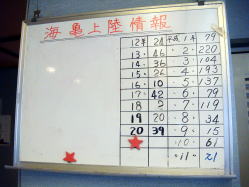 海亀上陸情報
12年 24 平成1年 79
13 · 46 · 2 · 220
14 · 36 · 3 · 104
15 · 26 · 4 · 193
16 · 10 · 5 · 137
17 · 42 · 6 · 79
18 2 · 7 · 119
19 20 · 8 · 34
20 39 · 9 · 15
· 10 · 61
· 11 ·